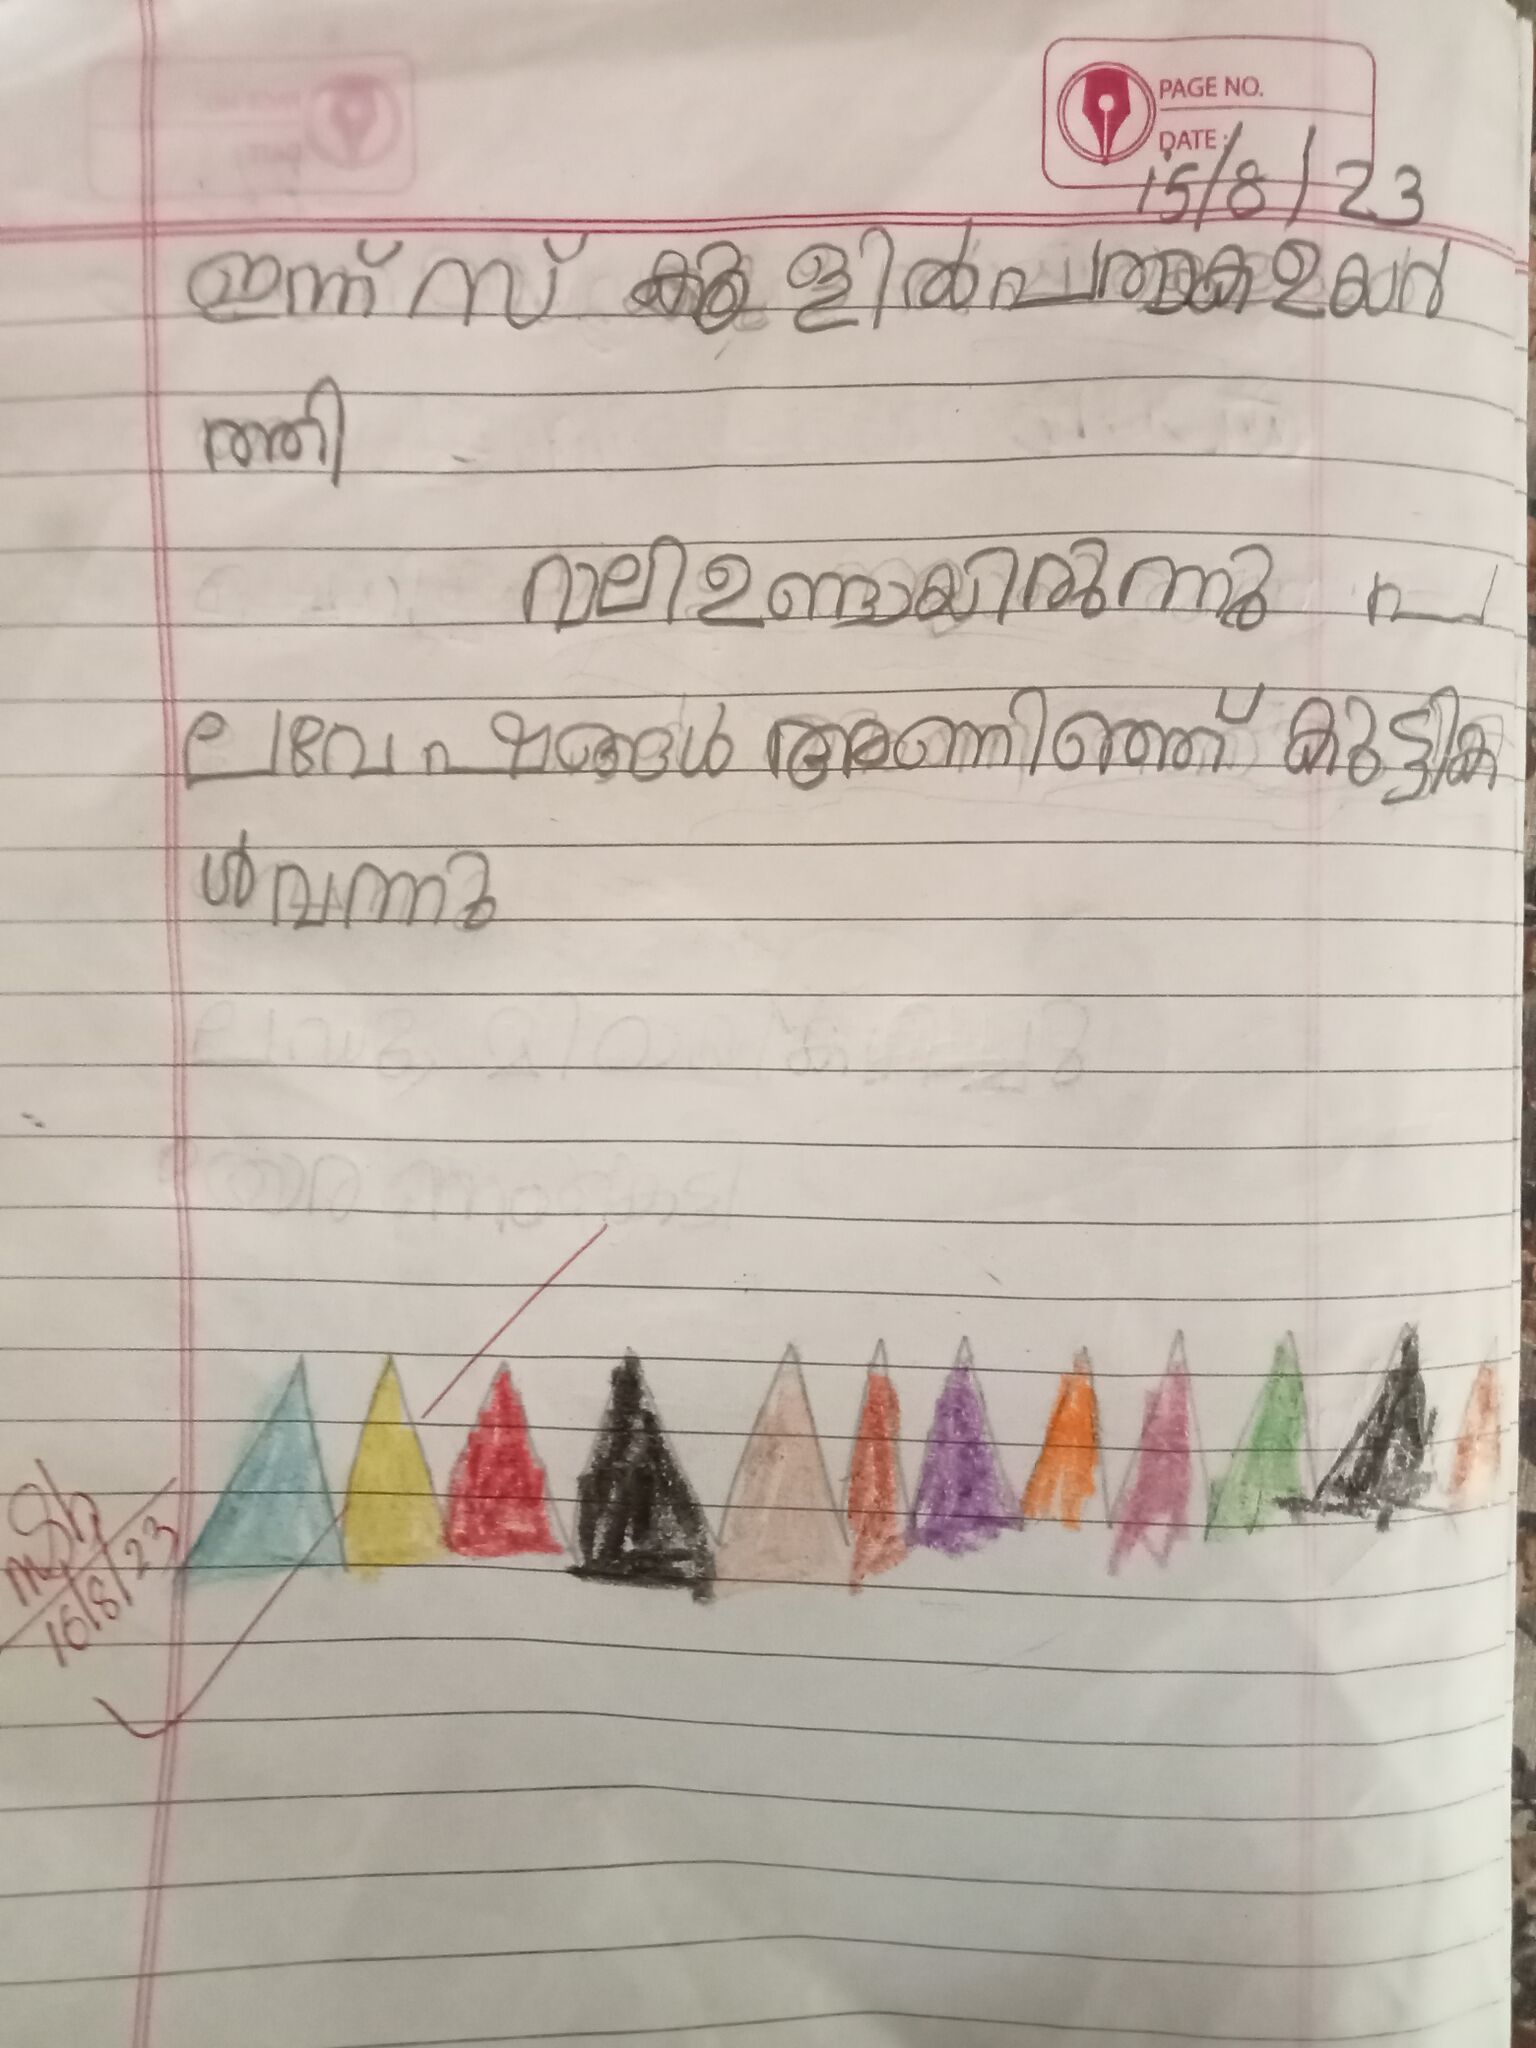 PAGE NO.
DATE:
15/8/23
ഇന്ന് സ് കൂ ളിൽ പതാക ഉയർ
ത്തി
റാലി ഉണ്ടായിരുന്നു പ
ല വേ ഷങ്ങൾ അണിഞ്ഞ് കുട്ടിക
ൾ വന്നു
16/8/23